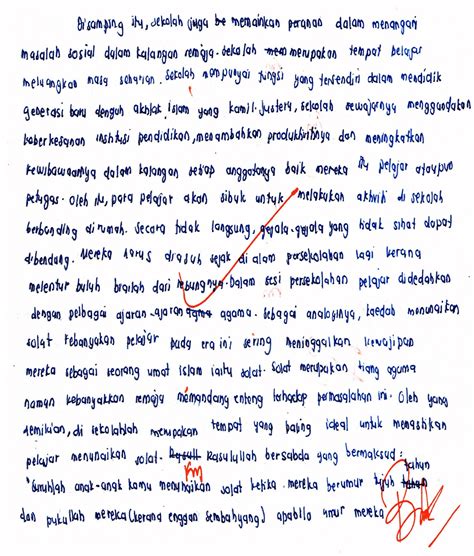 Disamping itu, sekolah juga be memainkan peranan dalam menangani
masalah sosial dalam kalangan remaja. Sekolah mem merupakan tempat pelajar
meluangkan masa seharian. Sekolah mempunyai fungsi yang tersendiri dalam mendidik
generasi baru dengan akhlak islam yang kamil. Justeru, sekolah sewajarnya menggandakan
keberkesanan institusi pendidikan, menambahkan produktivitinya dan meningkatkan
kewibawaannya dalam kalangan setiap anggotanya baik mereka itu pelajar ataupun
petugas. Oleh itu, para pelajar akan sibuk untuk melakukan aktiviti di sekolah
berbanding dirumah. Secara tidak langsung, gejala-gejala yang tidak sihat dapat
dibendung. Mereka harus diasuh sejak di alam persekolahan lagi kerana
melentur buluh biarlah dari rebungnya. Dalam sesi persekolahan pelajar didedahkan
dengan pelbagai ajaran-ajaran agama agama. Sebagai analoginya, kaedah menunaikan
solat kebanyakan pelajar pada era ini sering meninggalkan kewajipan
mereka sebagai seorang umat islam iaitu solat. Solat merupakan tiang agama
namun kebanyakkan remaja memandang enteng terhadap permasalahan ini. Oleh yang
demikian, di sekolahlah merupakan tempat yang paling ideal untuk memastikan
pelajar menunaikan solat. Rasulullah bersabda yang bermaksud:
"Suruhlah anak-anak kamu menunaikan solat ketika mereka berumur tujuh tahun
dan pukullah mereka (kerana enggan sembahyang) apabila umur mereka